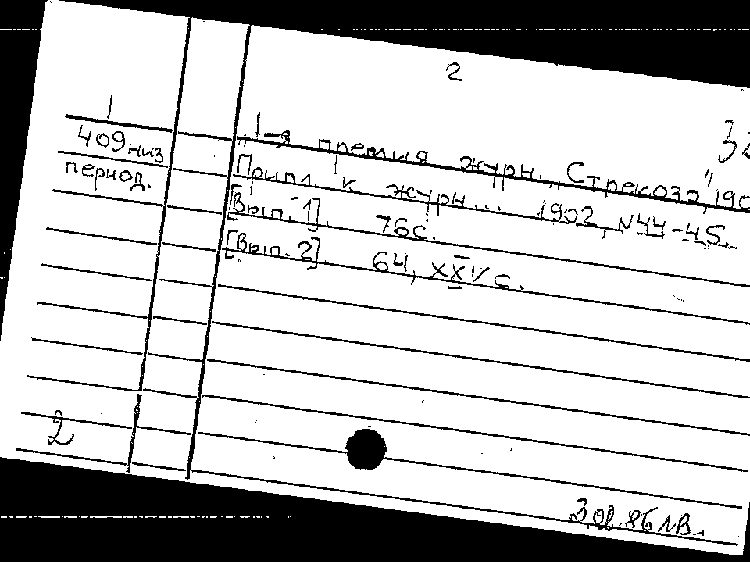 2
1
409-низ
период.
„1-я премия журн. „Стрекоза",
Прил. к журн... 1902, №44-45.
[Вып. 1]. 76с.
[Вып. 2]. 64, XXIV с.
2